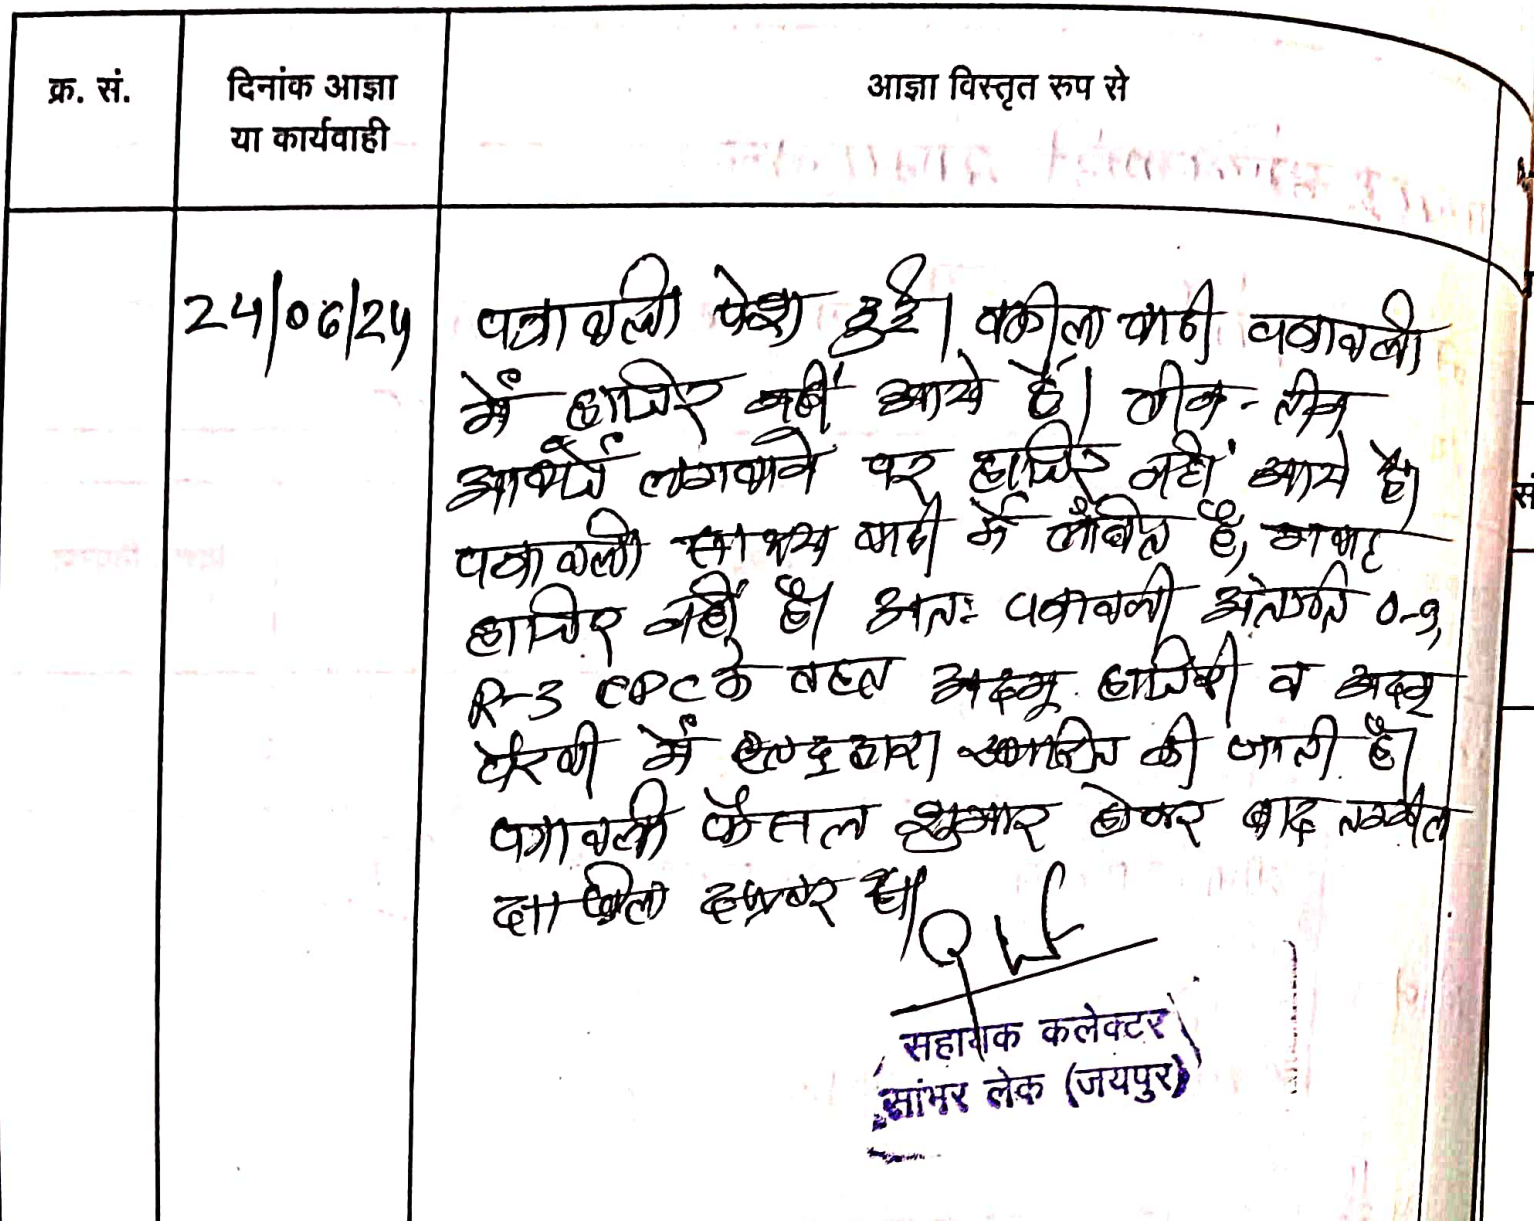 क्र. सं.
दिनांक आज्ञा
या कार्यवाही
आज्ञा विस्तृत रुप से
24/06/24
पत्रावली पेश हुई। वकील वादी पत्रावली
में हाजिर नहीं आये हैं। तीन-तीन
आवाजें लगवाने पर हाजिर नहीं आये है।
पत्रावली साक्ष्य वादी में लंबित है, गवाह
हाजिर नहीं है। अतः पत्रावली अंतर्गत 0-9,
R-3 CPC के तहत अदम हाजिरी व अदम
पैरवी में एतद् द्वारा खारिज की जाती है।
पत्रावली फैसल शुमार होकर बाद तकमील
दाखिल दफ्तर हो।
सहायक कलेक्टर
सांभर लेक (जयपुर)